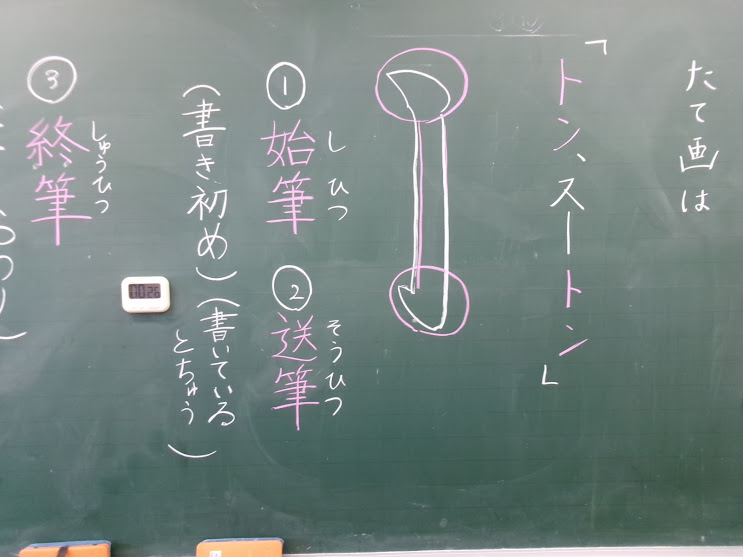 たて画は
「トン、スートン」
① 始筆
しひつ
(書き初め)
② 送筆
そうひつ
(書いている
とちゅう)
③ 終筆
しゅうひつ
00:26